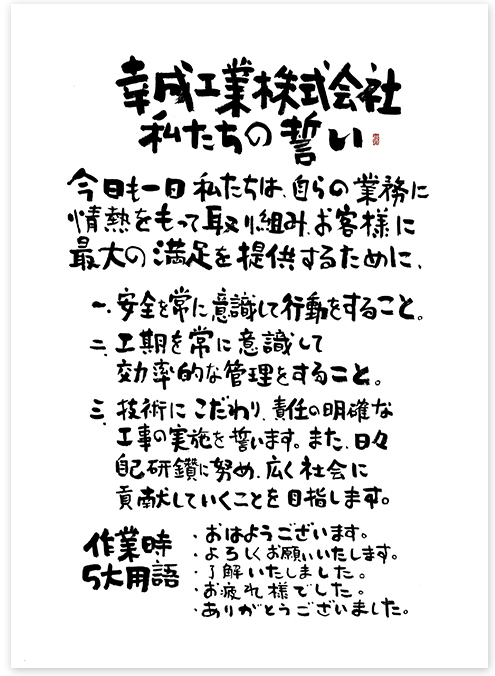 幸成工業株式会社
私たちの誓い
今日も一日 私たちは、自らの業務に
情熱をもって取り組み、お客様に
最大の満足を提供するために、
一、安全を常に意識して行動をすること。
二、工期を常に意識して
効率的な管理をすること。
三、技術にこだわり、責任の明確な
工事の実施を誓います。また、日々
自己研鑽に努め、広く社会に
貢献していくことを目指します。
作業時
5大用語
・おはようございます。
・よろしくお願いいたします。
・了解いたしました。
・お疲れ様でした。
・ありがとうございました。